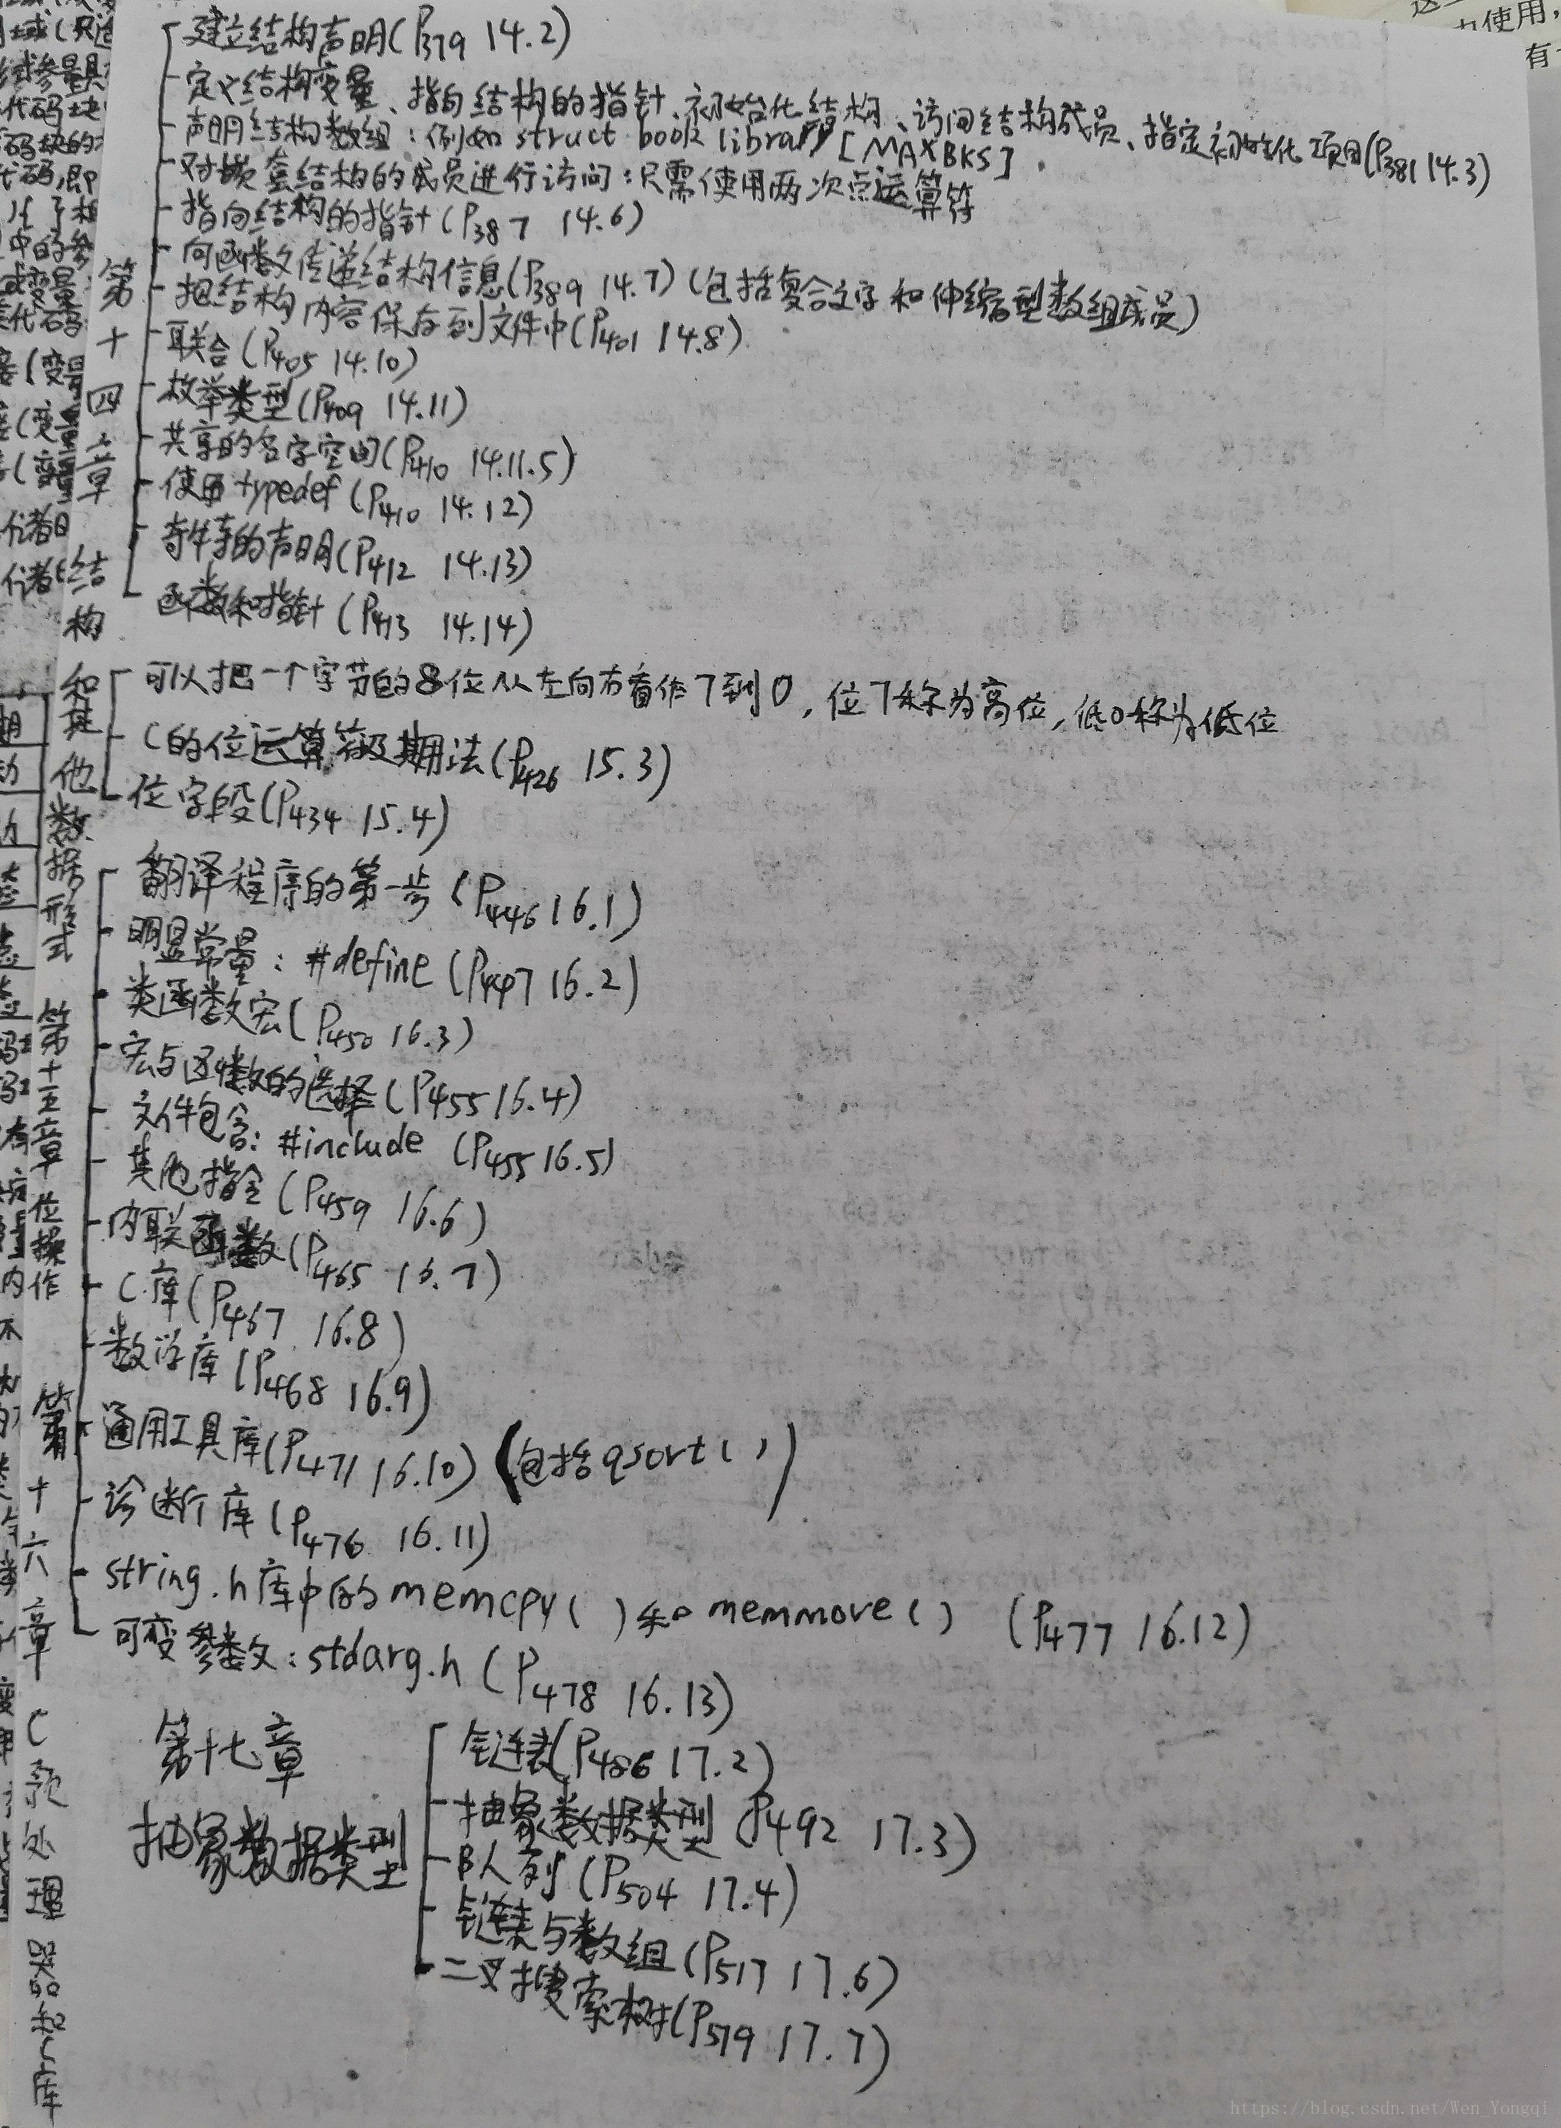 第十四章 结构和其他数据形式
建立结构声明(P379 14.2)
定义结构变量、指向结构的指针、初始化结构、访问结构成员、指定初始化项目(P381 14.3)
声明结构数组：例如 struct book library [MAXBKS].
对嵌套结构的成员进行访问：只需使用两次点运算符
指向结构的指针(P387 14.6)
向函数传递结构信息(P389 14.7)(包括复合文字和伸缩型数组成员)
把结构内容保存到文件中(P401 14.8)
联合(P405 14.10)
枚举类型(P409 14.11)
共享的名字空间(P410 14.11.5)
使用typedef(P410 14.12)
奇特的声明(P412 14.13)
函数和指针(P413 14.14)
第十五章 位操作
可以把一个字节的8位从左向右看作7到0，位7称为高位，低0称为低位
C的位运算符及其用法(P426 15.3)
位字段(P434 15.4)
第十六章 C预处理器和C库
翻译程序的第一步(P446 16.1)
明显常量：#define(P447 16.2)
类函数宏(P450 16.3)
宏与函数的选择(P455 16.4)
文件包含：#include (P455 16.5)
其他指令(P459 16.6)
内联函数(P465 16.7)
C库(P467 16.8)
数学库(P468 16.9)
通用工具库(P471 16.10)(包括qsort())
诊断库(P476 16.11)
string.h库中的memcpy()和memmove() (P477 16.12)
可变参数：stdarg.h(P478 16.13)
第十七章
抽象数据类型
链表(P486 17.2)
抽象数据类型(P492 17.3)
队列(P504 17.4)
链表与数组(P517 17.6)
二叉搜索树(P519 17.7)
使用，
有
https://blog.csdn.net/Wen_Yongqi